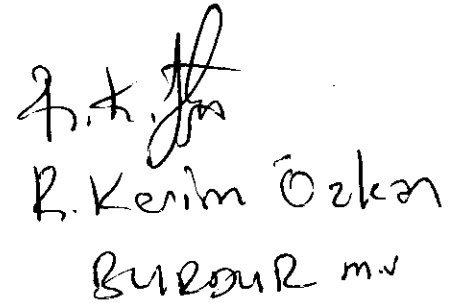 R. Kerim Özkan
BURDUR m.v